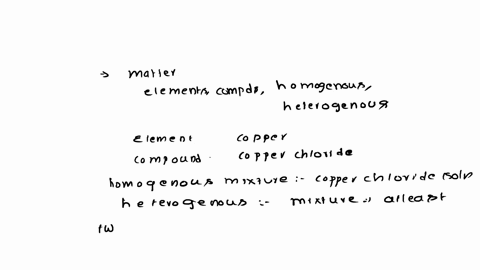 → matter
elements compds, homogenous,
heterogenous
element copper
compound. copper chloride
homogenous mixture :- copper chloride soln
heterogenous :- mixture :, atleast
tw